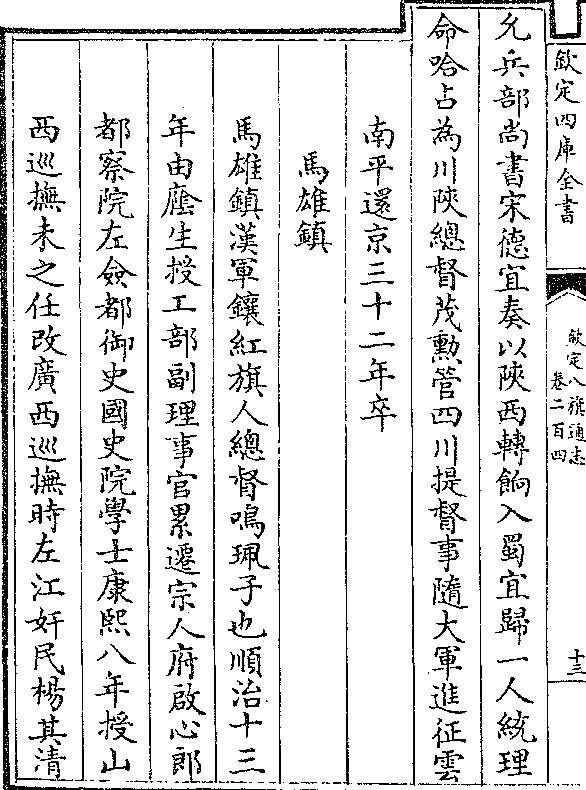 欽定四庫全書
欽定八旗通志
卷二百四
十三
允兵部尚書宋德宜奏以陜西轉餉入蜀宜歸一人統理
命哈占為川陜總督茂勲管四川提督事隨大軍進征雲
南平還京三十二年卒
馬雄鎮
馬雄鎮漢軍鑲紅旗人總督鳴珮子也順治十三
年由廕生授工部副理事官累遷宗人府啟心郎
都察院左僉都御史國史院學士康熙八年授山
西巡撫未之任改廣西巡撫時左江奸民楊其清